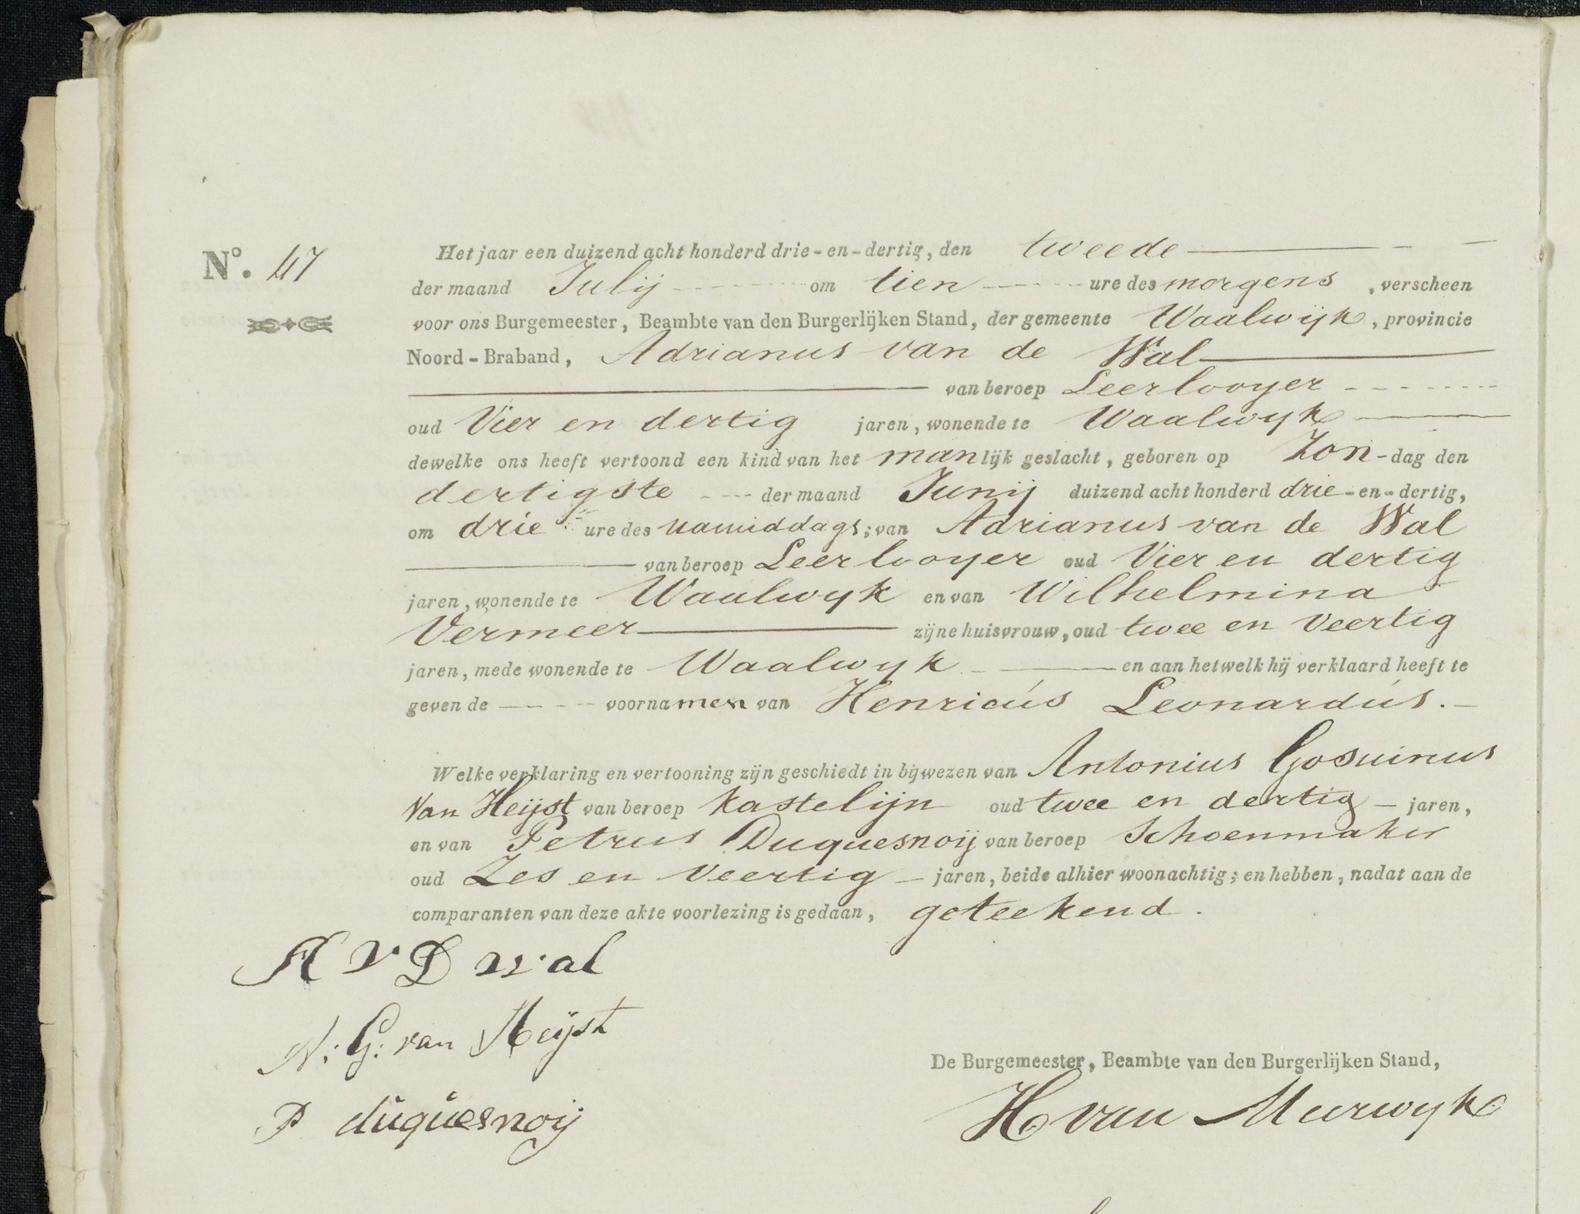 Nº. 47
Het jaar een duizend acht honderd drie-en-dertig, den tweede
der maand Julij om tien ure des morgens, verscheen
voor ons Burgemeester, Beambte van den Burgerlijken Stand, der gemeente Waalwijk, provincie
Noord-Braband, Adrianus van de Wal
van beroep Leerlooyer
oud Vier en dertig jaren, wonende te Waalwyk
dewelke ons heeft vertoond een kind van het manlijk geslacht, geboren op Zon-dag den
dertigste der maand Junij duizend acht honderd drie-en-dertig,
om drie ure des namiddags; van Adrianus van de Wal
van beroep Leerlooyer oud Vier en dertig
jaren, wonende te Waalwyk en van Wilhelmina
Vermeer zijne huisvrouw, oud twee en Veertig
jaren, mede wonende te Waalwyk en aan hetwelk hij verklaard heeft te
geven de voornamen van Henricus Leonardus.
Welke verklaring en vertooning zijn geschiedt in bijwezen van Antonius Gosuinus
Van Heijst van beroep kastelijn oud twee en dertig jaren,
en van Petrus Duquesnoij van beroep Schoenmaker
oud Zes en Veertig jaren, beide alhier woonachtig; en hebben, nadat aan de
comparanten van deze akte voorlezing is gedaan, geteekend.
A V D Wal
A: G: van Heijst
P duquesnoij
De Burgemeester, Beambte van den Burgerlijken Stand,
H van Meerwyk